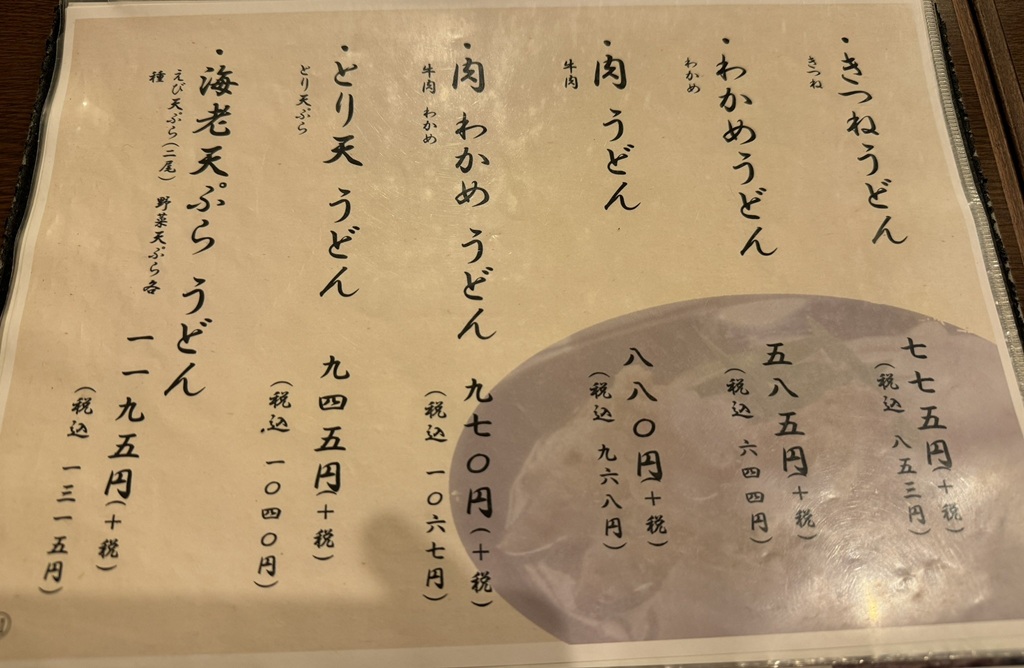 ・きつねうどん
きつね
七七五円(+税)
(税込 八五三円)
・わかめうどん
わかめ
五八五円(+税)
(税込 六四四円)
・肉うどん
牛肉
八八〇円(+税)
(税込 九六八円)
・肉 わかめ うどん
牛肉 わかめ
九七〇円(+税)
(税込 一〇六七円)
・とり天 うどん
とり天ぷら
九四五円(+税)
(税込 一〇四〇円)
・海老天ぷら うどん
えび天ぷら(二尾) 野菜天ぷら各
種
一一九五円(+税)
(税込 一三一五円)